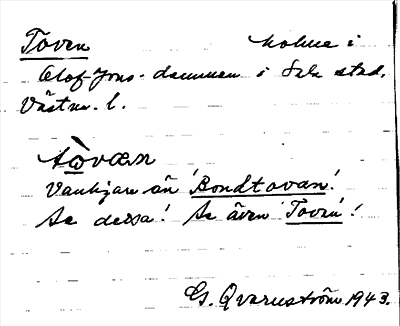 Toven holme i
Olof-Jons-dammen i Sala stad,
Västm. l.
tòvæn
Vanligare än 'Bondtovan'!
Se dessa! Se även 'Toven'!
G. Qvarnström 1943.